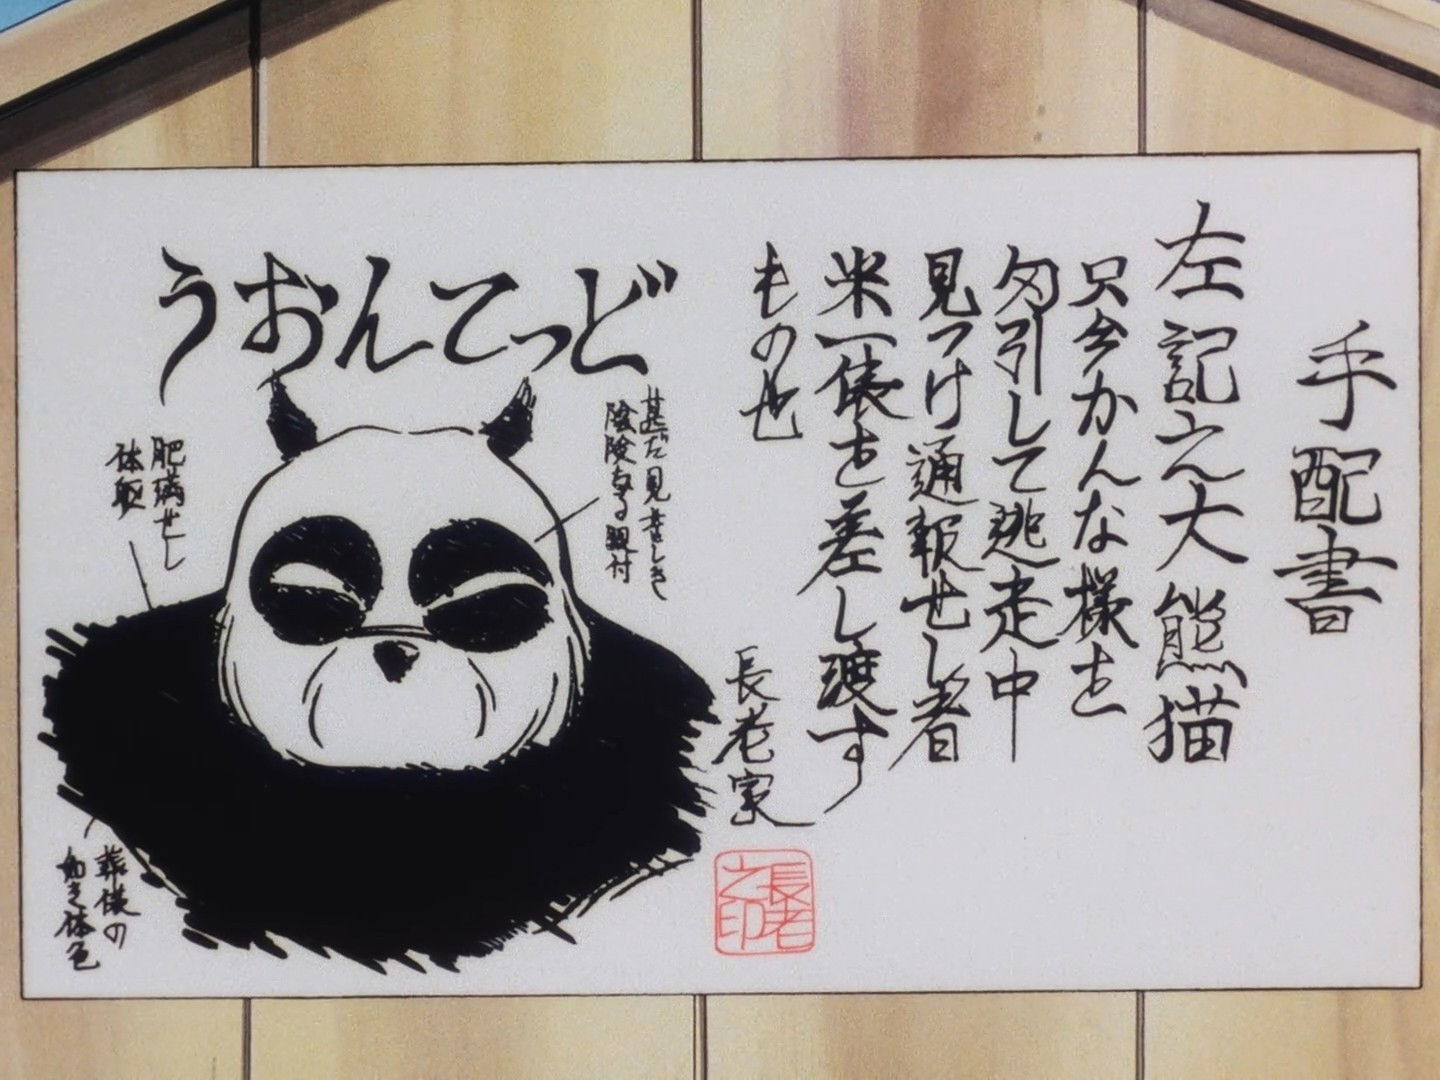 手配書
左記之大熊猫
只今かんな様を
勾引して逃走中
見つけ通報せし者
米一俵を差し渡す
もの也
長老家
長老之印
うおんてっど
甚だ見苦しき
陰険なる顔付
肥満せし
体躯
葬儀の
如き体色